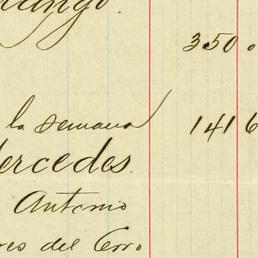 350
la semana 1416
Mercedes.
Antonio
del Cerro